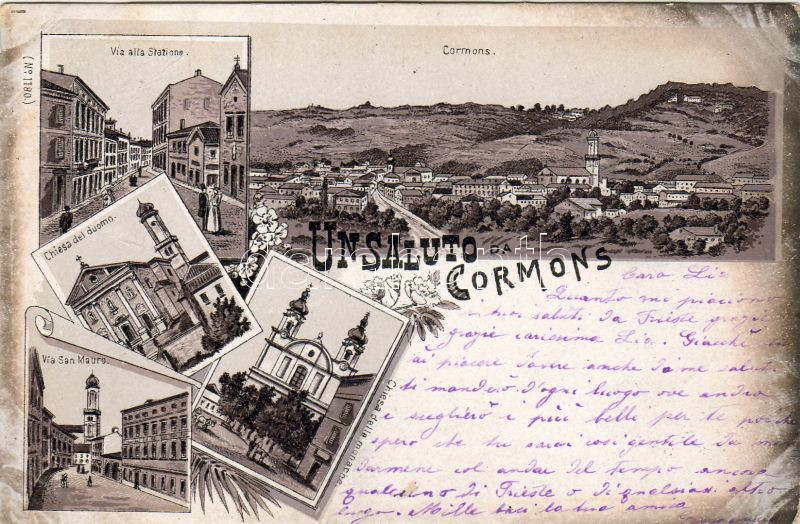 (Nº 1180.)
Via alla Stazione.
Cormons.
Chiesa del duomo.
UN SALUTO DA
CORMONS
Via San Mauro.
Chiesa delle monache
Cara Lia
Quanto mi piaciono
i tuoi saluti da Trieste grazie
grazie carissima Lia. Giacchè
ai piacere d'avere anche da me saluti
ti manderò d'ogni luogo ove andrò
e sceglierò i più belli per te poiche
spero che tu sarai così gentile da
darmene col andar del tempo ancora
qualcuno di Trieste o di qualsiasi altro
luogo. Mille baci la tua amica